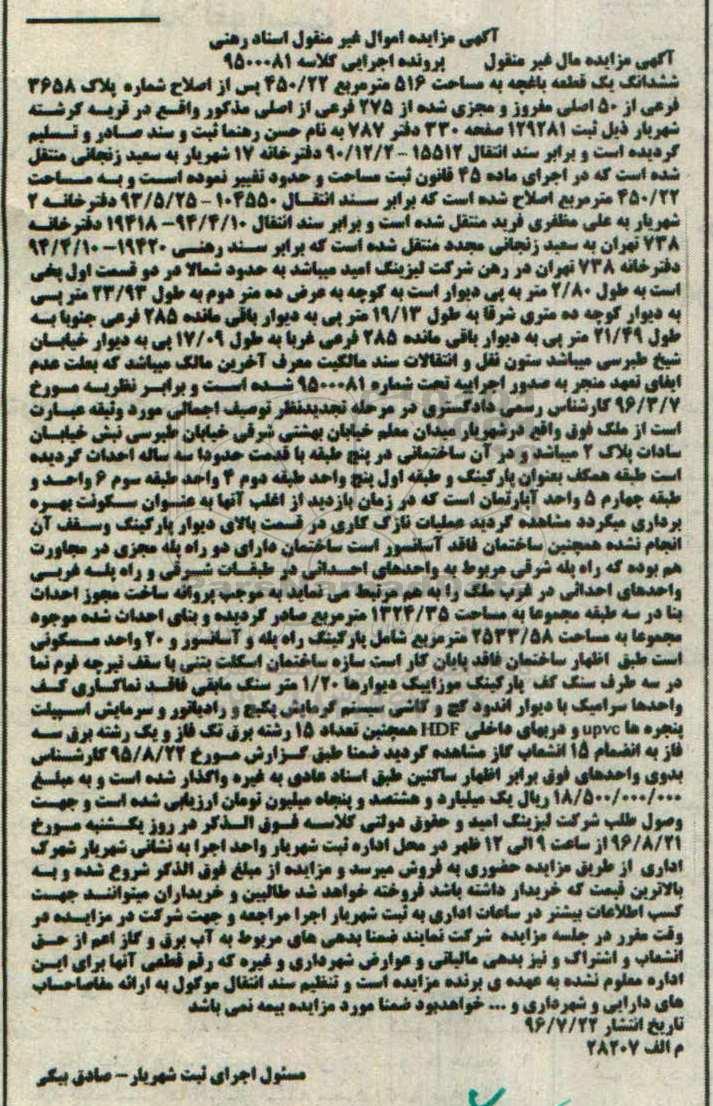 آگهی مزایده اموال غیر منقول اسناد رهنی
آگهی مزایده مال غیر منقول پرونده اجرایی کلاسه ۹۵۰۰۰۸۱
ششدانگ یک قطعه باغچه به مساحت ۵۱۶ مترمربع ۴۵۰/۲۲ پس از اصلاح شماره پلاک ۳۶۵۸
فرعی از ۵۰ اصلی مفروز و مجزی شده از ۲۷۵ فرعی از اصلی مذکور واقع در قریه کرشته
شهریار ذیل ثبت ۱۲۹۲۸۱ صفحه ۳۳۰ دفتر ۷۸۷ به نام حسن رهنما ثبت و سند صادر و تسلیم
گردیده است و برابر سند انتقال ۱۵۵۱۲ - ۹۰/۱۲/۲ دفترخانه ۱۷ شهریار به سعید زنجانی منتقل
شده است که در اجرای ماده ۴۵ قانون ثبت مساحت و حدود تغییر نموده است و به مساحت
۴۵۰/۲۲ مترمربع اصلاح شده است که برابر سند انتقال ۱۰۴۵۵۰ - ۹۳/۵/۲۵ دفترخانه ۲
شهریار به علی مظفری فرید منتقل شده است و برابر سند انتقال ۹۴/۴/۱۰ - ۱۹۴۱۸ دفترخانه
۷۳۸ تهران به سعید زنجانی مجدد منتقل شده است که برابر سند رهنی ۱۹۴۲۰ - ۹۴/۴/۱۰
دفترخانه ۷۳۸ تهران در رهن شرکت لیزینگ امید میباشد به حدود شمالا در دو قسمت اول پخی
است به طول ۲/۸۰ متر به پی دیوار است به کوچه به عرض ده متر دوم به طول ۲۳/۹۳ متر پی
به دیوار کوچه ده متری شرقا به طول ۱۹/۱۳ متر پی به دیوار باقی مانده ۲۸۵ فرعی جنوبا به
طول ۲۱/۴۹ متر پی به دیوار باقی مانده ۲۸۵ فرعی غربا به طول ۱۷/۰۹ پی به دیوار خیابان
شیخ طبرسی میباشد ستون نقل و انتقالات سند مالکیت معرف آخرین مالک میباشد که بعلت عدم
ایفای تعهد منجر به صدور اجراییه تحت شماره ۹۵۰۰۰۸۱ شده است و برابر نظریه مورخ
۹۶/۳/۷ کارشناس رسمی دادگستری در مرحله تجدیدنظر توصیف اجمالی مورد وثیقه عبارت
است از ملک فوق واقع درشهریار میدان معلم خیابان بهشتی شرقی خیابان طبرسی نبش خیابان
سادات پلاک ۲ میباشد و در آن ساختمانی در پنج طبقه با قدمت حدودا سه ساله احداث گردیده
است طبقه همکف بعنوان پارکینگ و طبقه اول پنج واحد طبقه دوم ۴ واحد طبقه سوم ۶ واحد و
طبقه چهارم ۵ واحد آپارتمان است که در زمان بازدید از اغلب آنها به عنوان سکونت بهره
برداری میگردد مشاهده گردید عملیات نازک کاری در قسمت بالای دیوار پارکینگ وسقف آن
انجام نشده همچنین ساختمان فاقد آسانسور است ساختمان دارای دو راه پله مجزی در مجاورت
هم بوده که راه پله شرقی مربوط به واحدهای احداثی در طبقات شرقی و راه پله غربی
واحدهای احداثی در غرب ملک را به هم مرتبط می نماید به موجب پروانه ساخت مجوز احداث
بنا در سه طبقه مجموعا به مساحت ۱۳۲۴/۳۵ مترمربع صادر گردیده و بنای احداث شده موجود
مجموعا به مساحت ۲۵۳۳/۵۸ مترمربع شامل پارکینگ راه پله و آسانسور و ۲۰ واحد مسکونی
است طبق اظهار ساختمان فاقد پایان کار است سازه ساختمان اسکلت بتنی با سقف تیرچه فوم نما
در سه طرف سنگ کف پارکینگ موزاییک دیوارها ۱/۲۰ متر سنگ مابقی فاقد نماکاری کف
واحدها سرامیک با دیوار اندود گچ و کاشی سیستم گرمایش پکیج و رادیاتور و سرمایش اسپیلت
پنجره ها upvc و دربهای داخلی HDF همچنین تعداد ۱۵ رشته برق تک فاز و یک رشته برق سه
فاز به انضمام ۱۵ انشعاب گاز مشاهده گردید ضمنا طبق گزارش مورخ ۹۵/۸/۲۲ کارشناس
بدوی واحدهای فوق برابر اظهار ساکنین طبق اسناد عادی به غیره واگذار شده است و به مبلغ
۱۸/۵۰۰/۰۰۰/۰۰۰ ریال یک میلیارد و هشتصد و پنجاه میلیون تومان ارزیابی شده است و جهت
وصول طلب شرکت لیزینگ امید و حقوق دولتی کلاسه فوق الذکر در روز یکشنبه مورخ
۹۶/۸/۲۱ از ساعت ۹ الی ۱۲ ظهر در محل اداره ثبت شهریار واحد اجرا به نشانی شهریار شهرک
اداری از طریق مزایده حضوری به فروش میرسد و مزایده از مبلغ فوق الذکر شروع شده و به
بالاترین قیمت که خریدار داشته باشد فروخته خواهد شد طالبین و خریداران میتوانند جهت
کسب اطلاعات بیشتر در ساعات اداری به ثبت شهریار اجرا مراجعه و جهت شرکت در مزایده در
وقت مقرر در جلسه مزایده شرکت نمایند ضمنا بدهی های مربوط به آب برق و گاز اعم از حق
انشعاب و اشتراک و نیز بدهی مالیاتی و عوارض شهرداری و غیره که رقم قطعی آنها برای این
اداره معلوم نشده به عهده ی برنده مزایده است و تنظیم سند انتقال موکول به ارائه مفاصاحساب
های دارایی و شهرداری و ... خواهدبود ضمنا مورد مزایده بیمه نمی باشد
تاریخ انتشار ۹۶/۷/۲۲
م الف ۲۸۲۰۷
مسئول اجرای ثبت شهریار - صادق بیکی